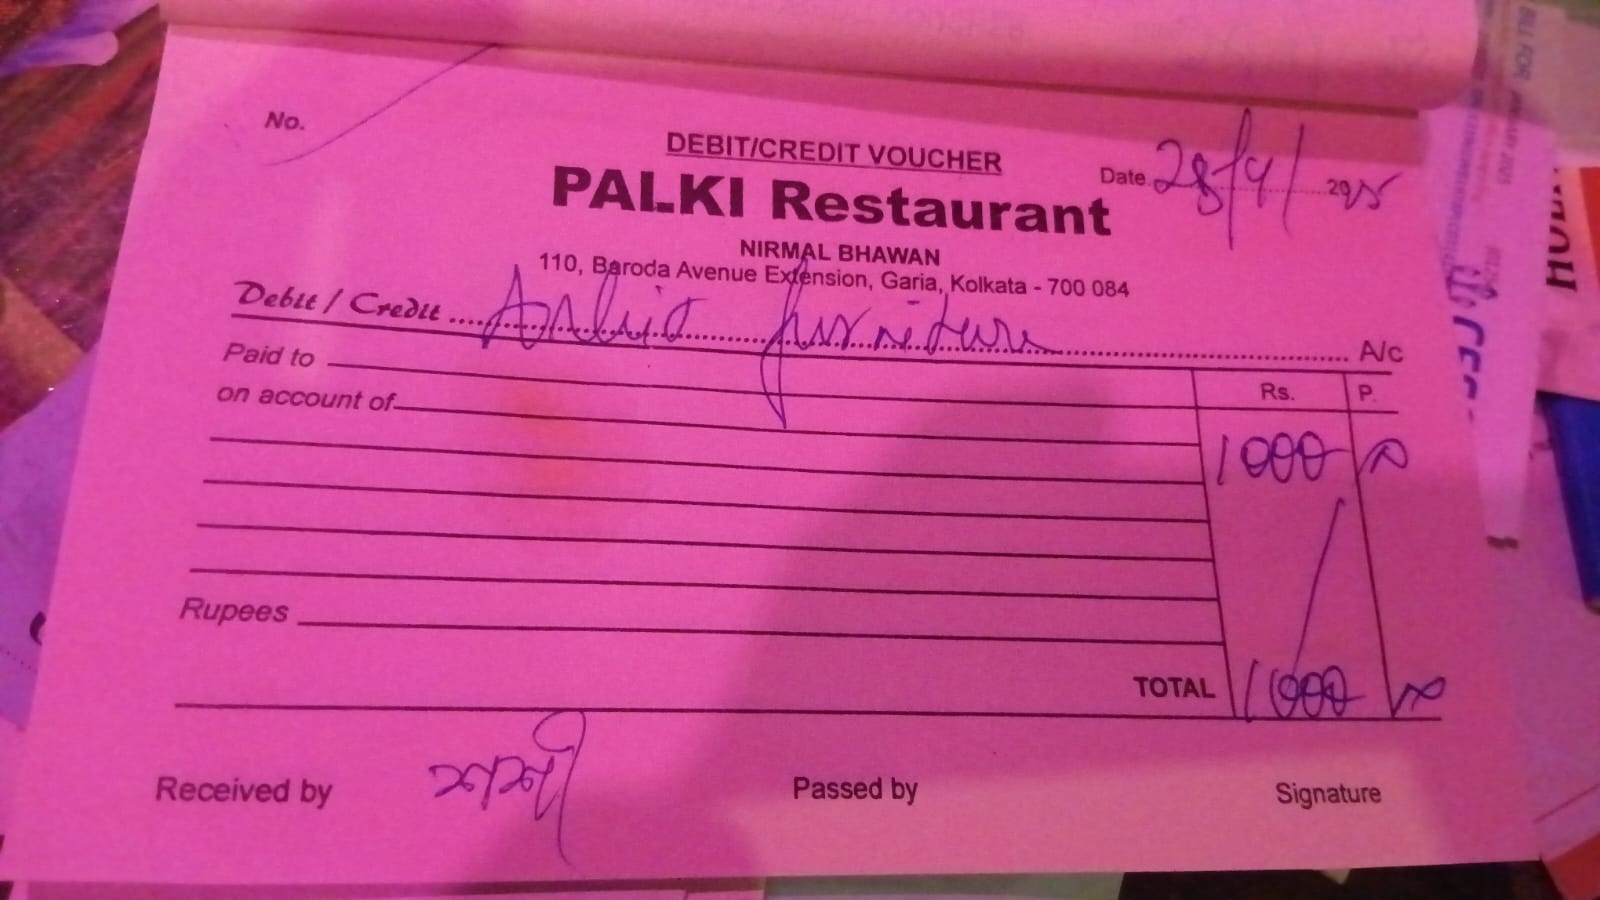 No.
DEBIT/CREDIT VOUCHER
Date 28/4/2025
PALKI Restaurant
NIRMAL BHAWAN
110, Baroda Avenue Extension, Garia, Kolkata - 700 084
Debit / Credit furniture A/c
Paid to
Rs. P.
on account of
1000
Rupees
TOTAL 1000
Received by
Passed by
Signature
BILL FOR